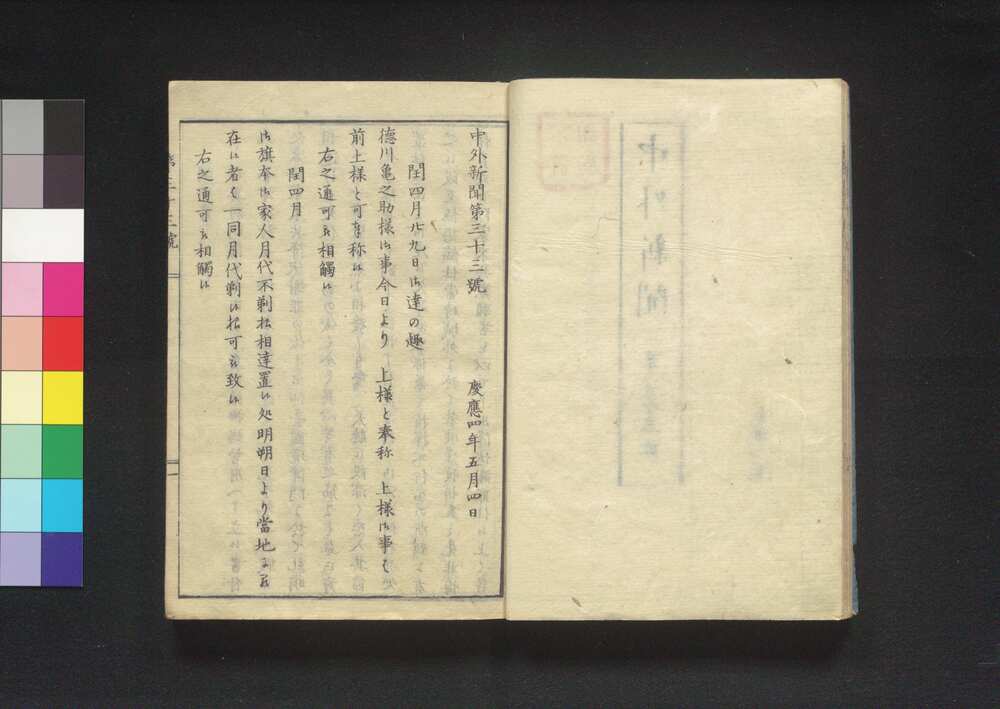 中外新聞第三十三號 慶應四年五月四日
閏四月廿九日御達の趣
徳川亀之助様御事今日より 上様と奉称 上様御事も
前上様と可奉称候
右之通可被相觸候
閏四月
御旗本御家人月代不剃様相達置候処明朔日より當地に罷
在候者も一同月代剃候様可被致候
右之通可被相觸候
第三十三號
一